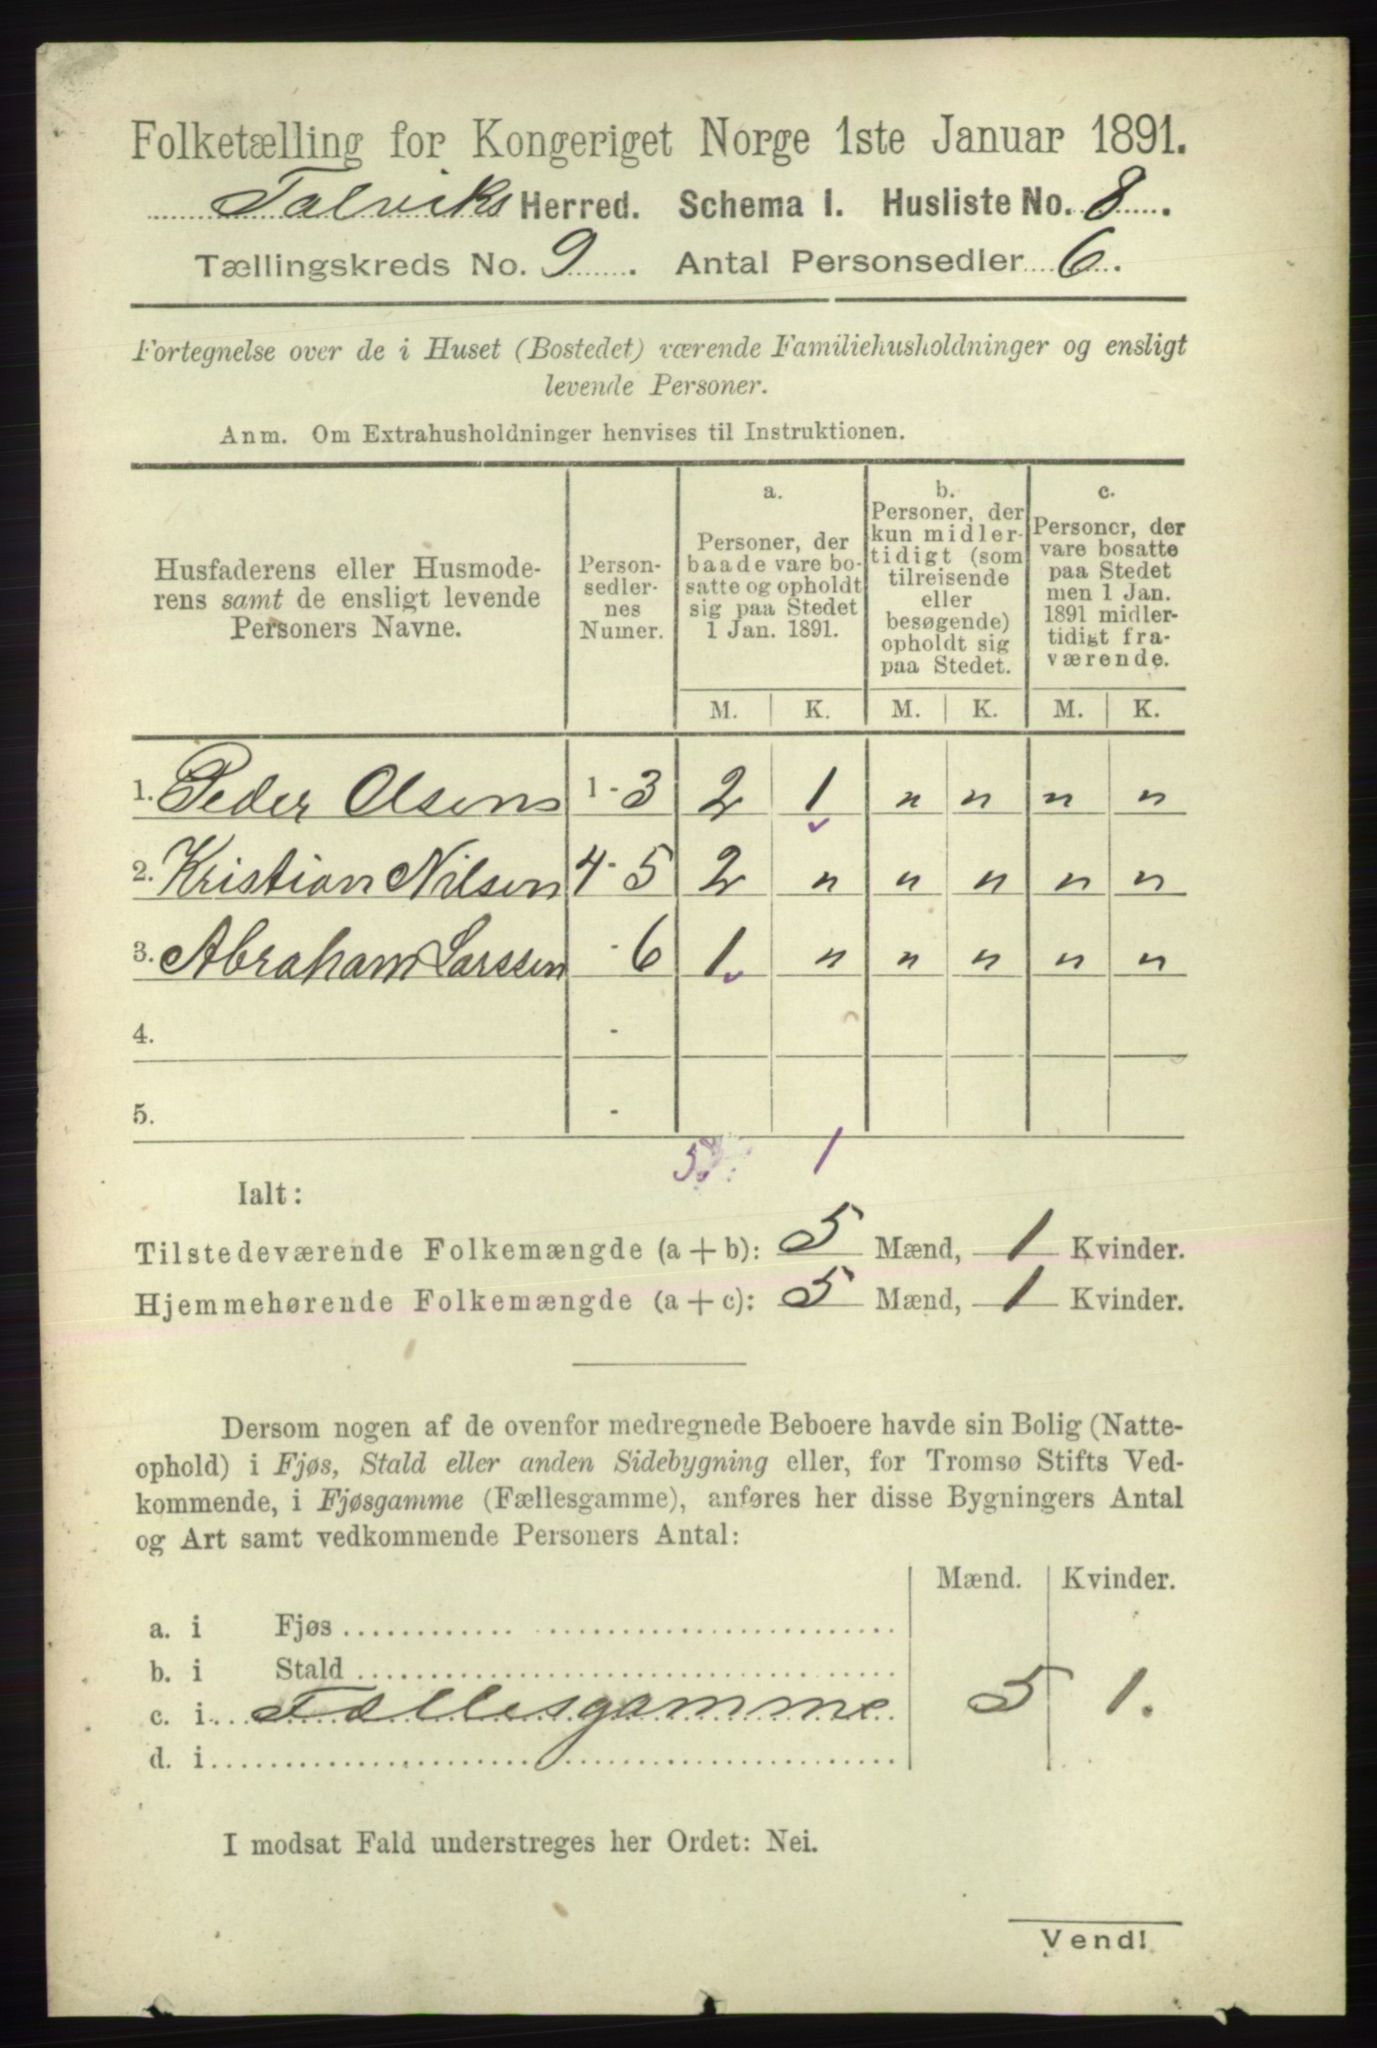 Folketælling for Kongeriget Norge 1ste Januar 1891.
Talviks Herred. Schema I. Husliste No. 8.
Tællingskreds No. 9. Antal Personsedler 6.
Fortegnelse over de i Huset (Bostedet) værende Familiehusholdninger og ensligt
levende Personer.
Anm. Om Extrahusholdninger henvises til Instruktionen.
Husfaderens eller Husmode-
rens samt de ensligt levende
Personers Navne.
Person-
sedler-
nes
Numer.
a.
Personer, der
baade vare bo-
satte og opholdt
sig paa Stedet
1 Jan. 1891.
b.
Personer, der
kun midler-
tidigt (som
tilreisende
eller
besøgende)
opholdt sig
paa Stedet.
c.
Personer, der
vare bosatte
paa Stedet
men 1 Jan.
1891 midler-
tidigt fra-
værende.
M. K. M. K. M. K.
1. Peder Olsens 1-3 2 1 " " " "
2. Kristian Nilsen 4-5 2 " " " " "
3. Abraham Larssen - 6 1 " " " " "
4. -
5. -
5 1
Ialt:
Tilstedeværende Folkemængde (a + b): 5 Mænd, 1 Kvinder.
Hjemmehørende Folkemængde (a + c): 5 Mænd, 1 Kvinder.
Dersom nogen af de ovenfor medregnede Beboere havde sin Bolig (Natte-
ophold) i Fjøs, Stald eller anden Sidebygning eller, for Tromsø Stifts Ved-
kommende, i Fjøsgamme (Fællesgamme), anføres her disse Bygningers Antal
og Art samt vedkommende Personers Antal:
Mænd. Kvinder.
a. i Fjøs
b. i Stald
c. i Fællesgamme 5 1.
d. i
I modsat Fald understreges her Ordet: Nei.
Vend!